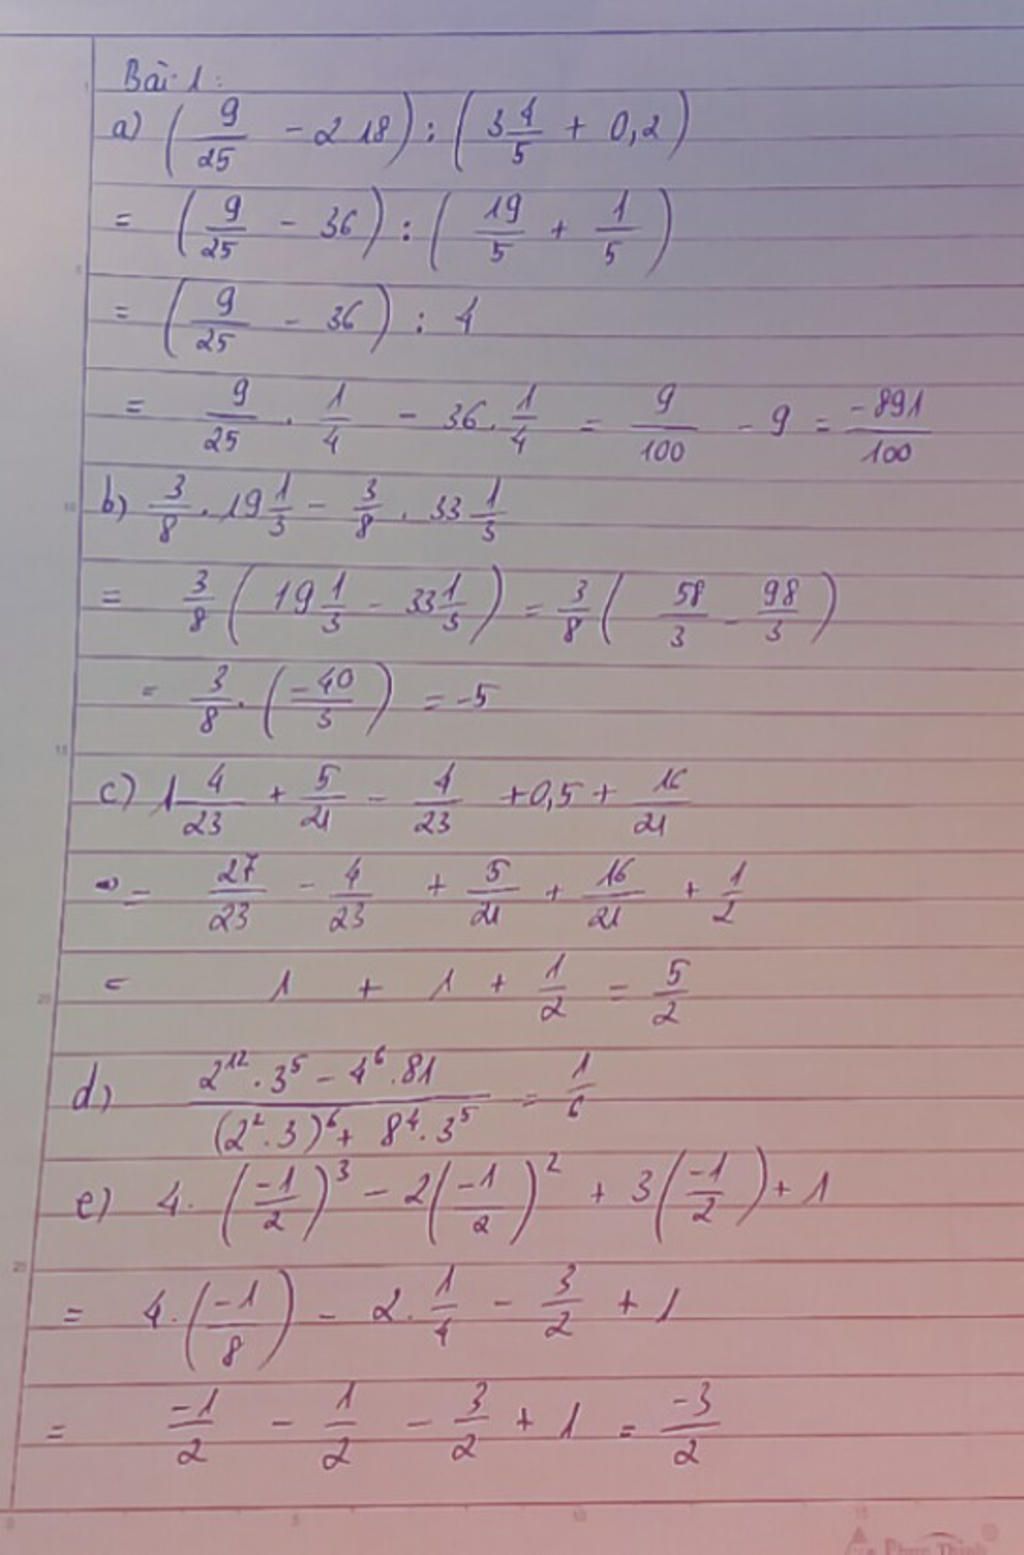 Bài 1:
a) (9/25 - 2 18) : (3 4/5 + 0,2)
= (9/25 - 36) : (19/5 + 1/5)
= (9/25 - 36) : 4
= 9/25 . 1/4 - 36 . 1/4 = 9/100 - 9 = -891/100
b) 3/8 . 19 1/3 - 3/8 . 33 1/3
= 3/8 (19 1/3 - 33 1/3) = 3/8 (58/3 - 98/3)
= 3/8 . (-40/3) = -5
c) 1 4/23 + 5/21 - 4/23 + 0,5 + 16/21
= 27/23 - 4/23 + 5/21 + 16/21 + 1/2
= 1 + 1 + 1/2 = 5/2
d) (2^12 . 3^5 - 4^6 . 81)/((2^2 . 3)^6 + 8^4 . 3^5) = 1/6
e) 4 . (-1/2)^3 - 2(-1/2)^2 + 3(-1/2) + 1
= 4 . (-1/8) - 2 . 1/4 - 3/2 + 1
= -1/2 - 1/2 - 3/2 + 1 = -3/2